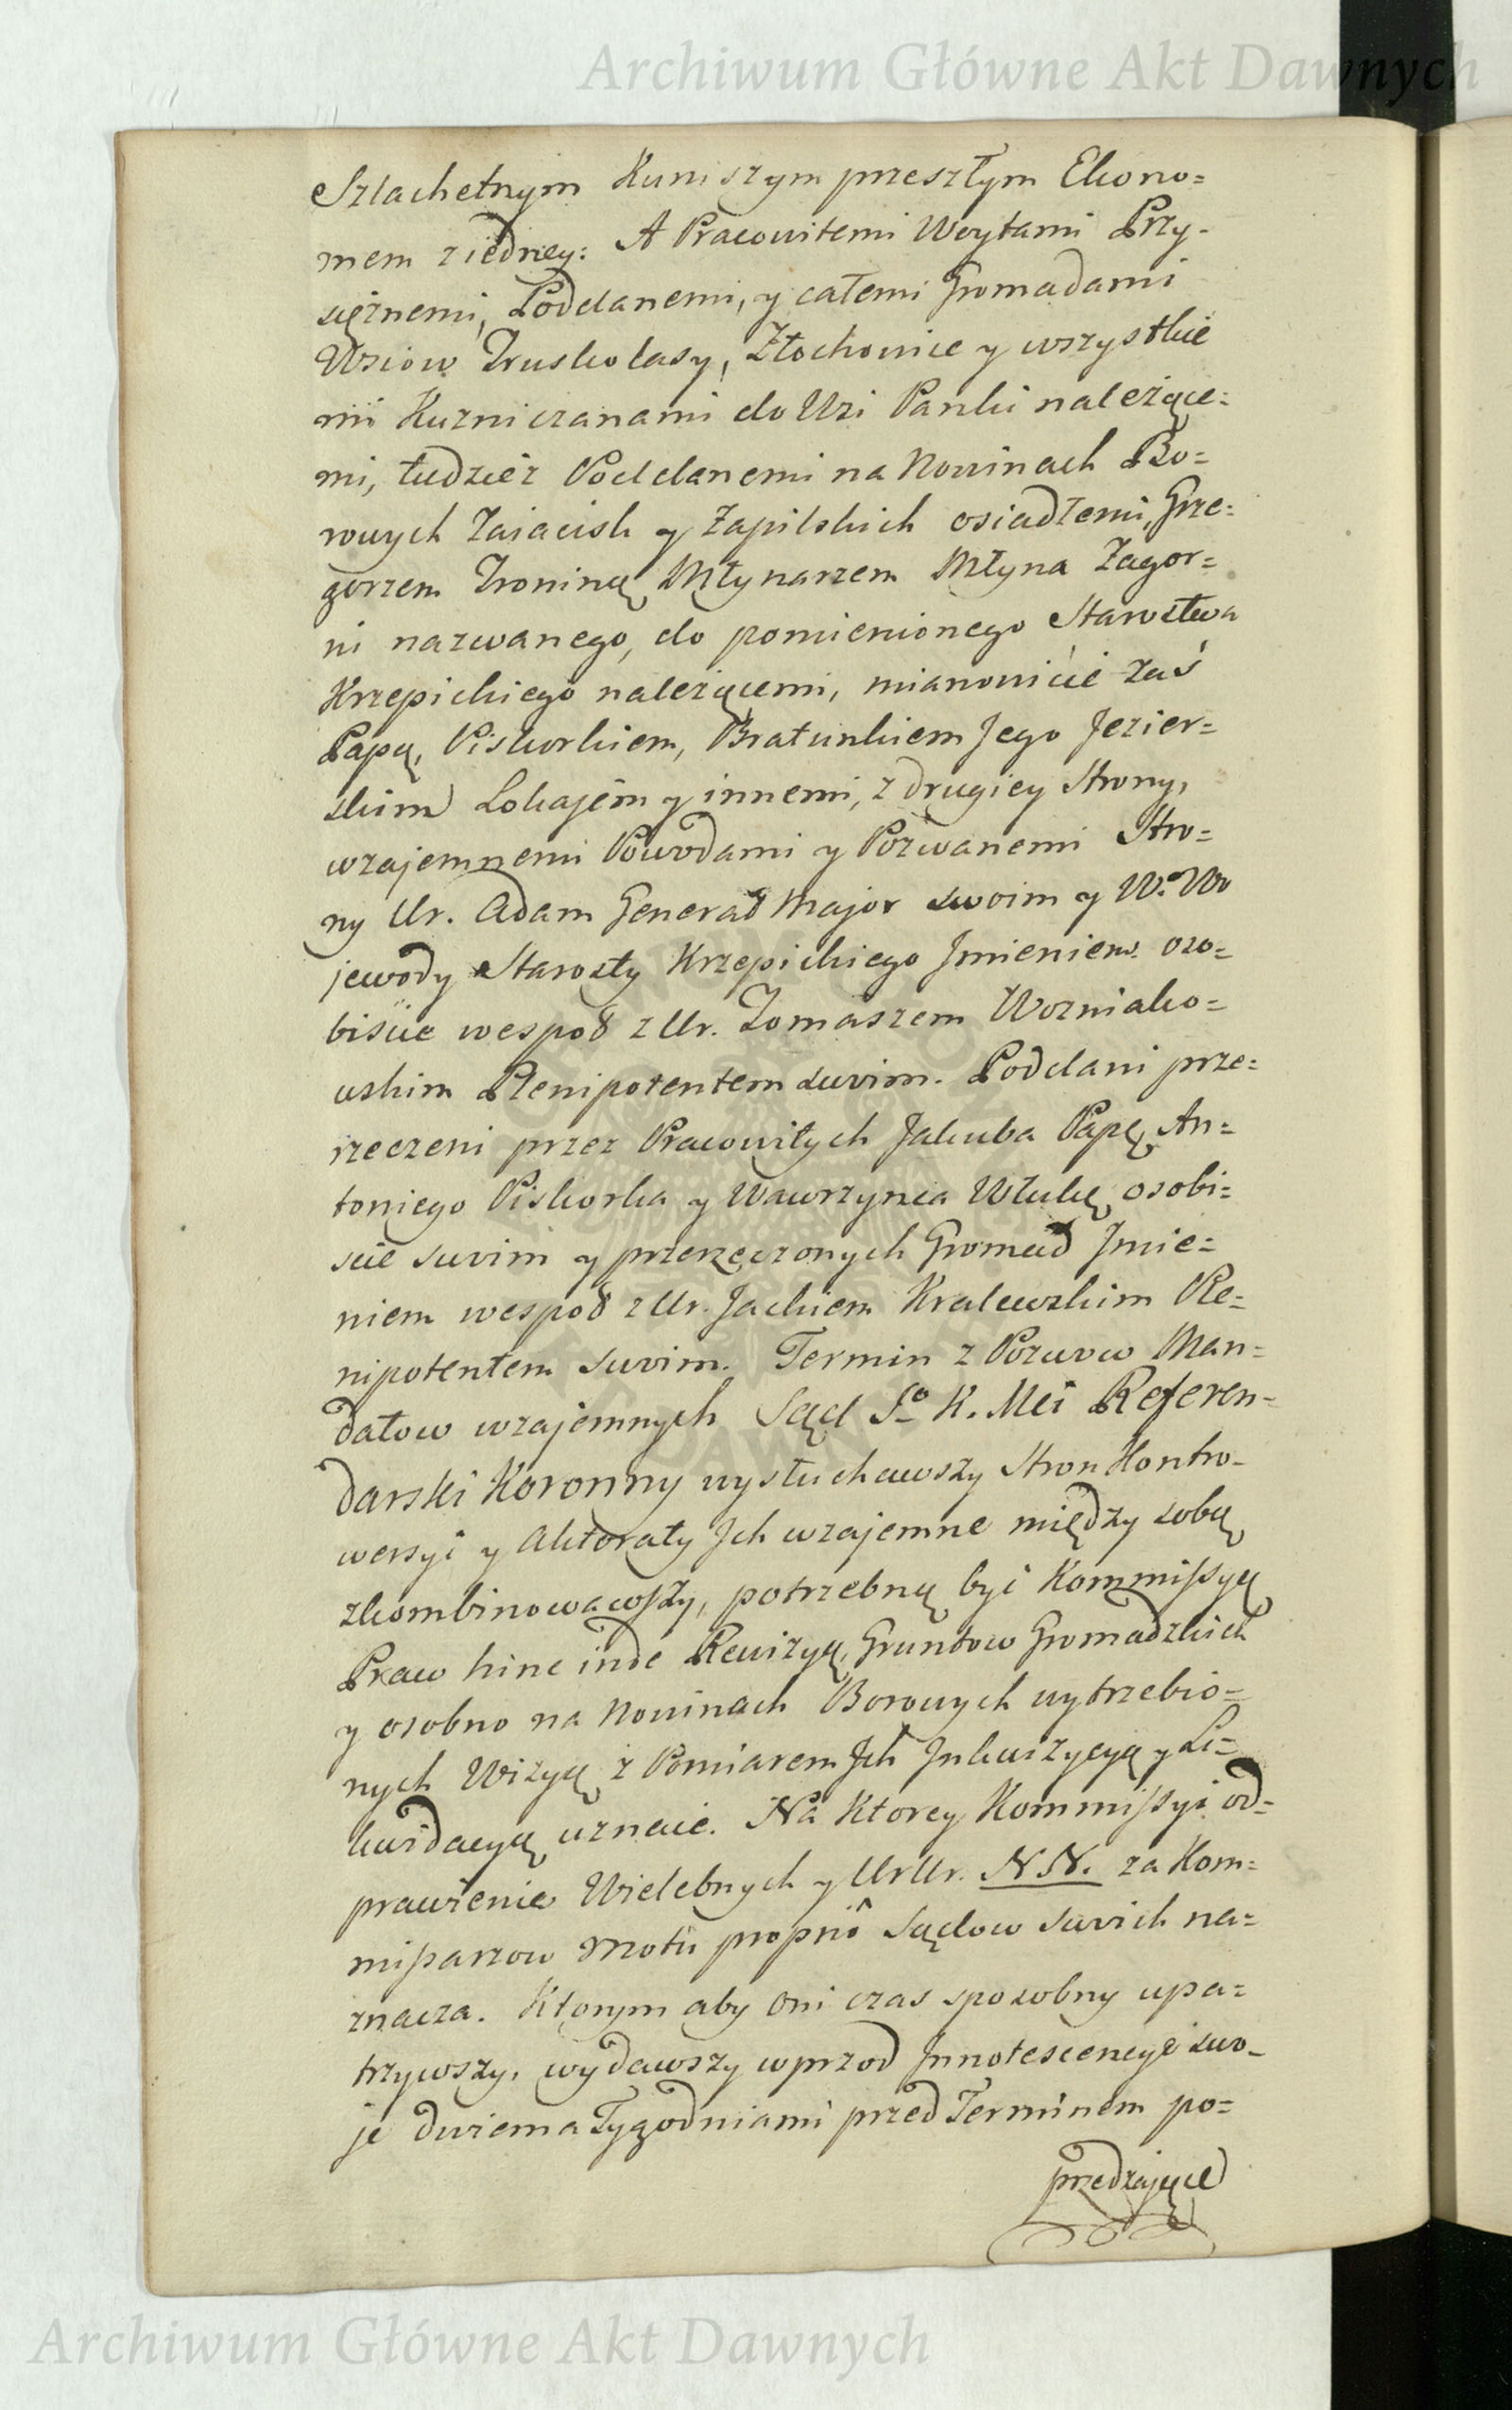 Archiwum Główne Akt Dawnych
Szlachetnym Kuniszym przeszłym Ekono=
mem z iedney: A Pracowitemi Woytami Przy-
siężnemi, Poddanemi, y całemi Gromadami
Wsiow Truskolasy, Złochowice y wszystkie
mi Kuzniczanami do Wsi Panki należące=
mi, tudzież Poddanemi na Nowinach Bo=
rowych Zaiacisk y Zapilskich osiadłemi, Grze=
gorzem Troniną Młynarzem Młyna Zagor=
ni nazwanego, do pomienionego Starostwa
Krzepickiego należącemi, mianowicie zaś
Papą, Piskorkiem, Bratunkiem Jego Jezier=
skim Lokajem y innemi, z drugiey Strony,
wzajemnemi Powodami y Pozwanemi Stro=
ny Ur. Adam Generał Major swoim y W. Wo
jewody Starosty Krzepickiego Jmieniem oso=
biście wespoł z Ur. Tomaszem Wozniako=
wskim Plenipotentem swoim. Poddani prze=
rzeczeni przez Pracowitych Jakuba Papę, An=
toniego Piskorka y Wawrzynca Wtukę osobi=
scie swoim y przerzeczonych Gromad Jmie=
niem wespoł z Ur. Jackiem Kralewskim Ple=
nipotentem swoim. Termin z Pozwow Man=
datow wzajemnych Sąd Jo K. Mci Referen=
darski Koronny wysłuchawszy Stron Kontro-
wersyi y Aktoraty Jch wzajemne między sobą
zkombinowawszy, potrzebną być Kommissyą
Praw hinc inde Rewizyą, Gruntow Gromadzkich
y osobno na Nowinach Borowych wytrzebio=
nych Wizyą z Pomiarem Jch Jnkwizycyą y Li=
kwidacyą uznaie. Na Ktorey Kommissyi od=
prawienie Wielebnych y UrUr. N.N. za Kom=
missarzow motu proprio Sądow swoich na=
znacza. Ktorym aby oni czas sposobny upa=
trzywszy, wydawszy wprzod Jnnotescencye swo-
je dwiema Tygodniami przed Terminem po=
przedzające
Archiwum Główne Akt Dawnych